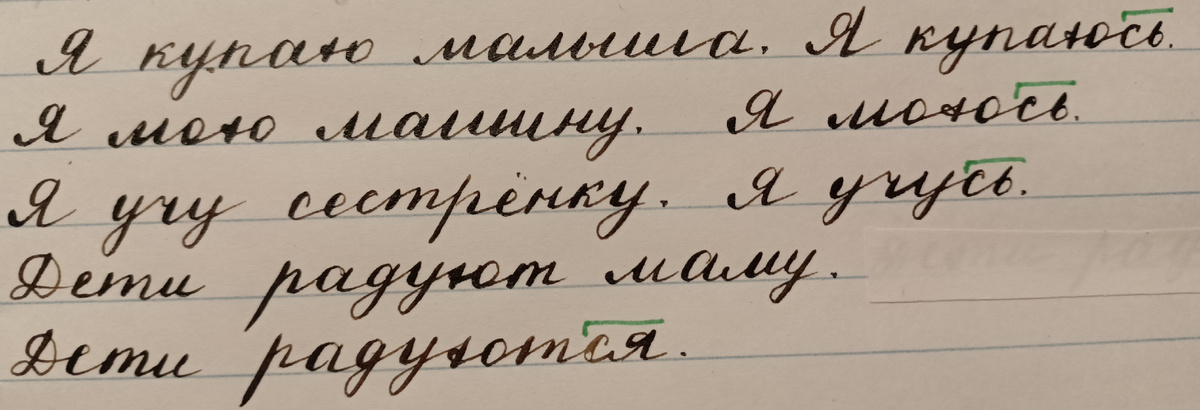 Я купаю малыша. Я купаюсь.
Я мою машину. Я моюсь.
Я учу сестрёнку. Я учусь.
Дети радуют маму.
Дети радуются.